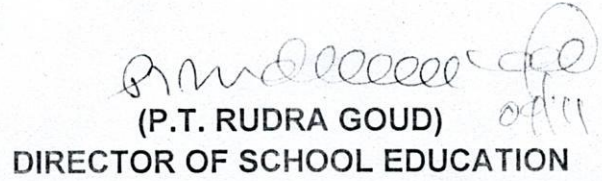 (P.T. RUDRA GOUD)
DIRECTOR OF SCHOOL EDUCATION